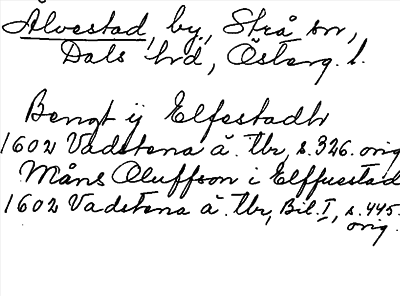 Alvestad, by, Strå sn,
Dals hd, Österg. l.
Bengt ij Elfestadh
1602 Vadstena ä. tbr, s. 326. orig
Måns Oluffson i Elffuestad
1602 Vadstena ä. tbr, Bil. I, s. 445.
orig.